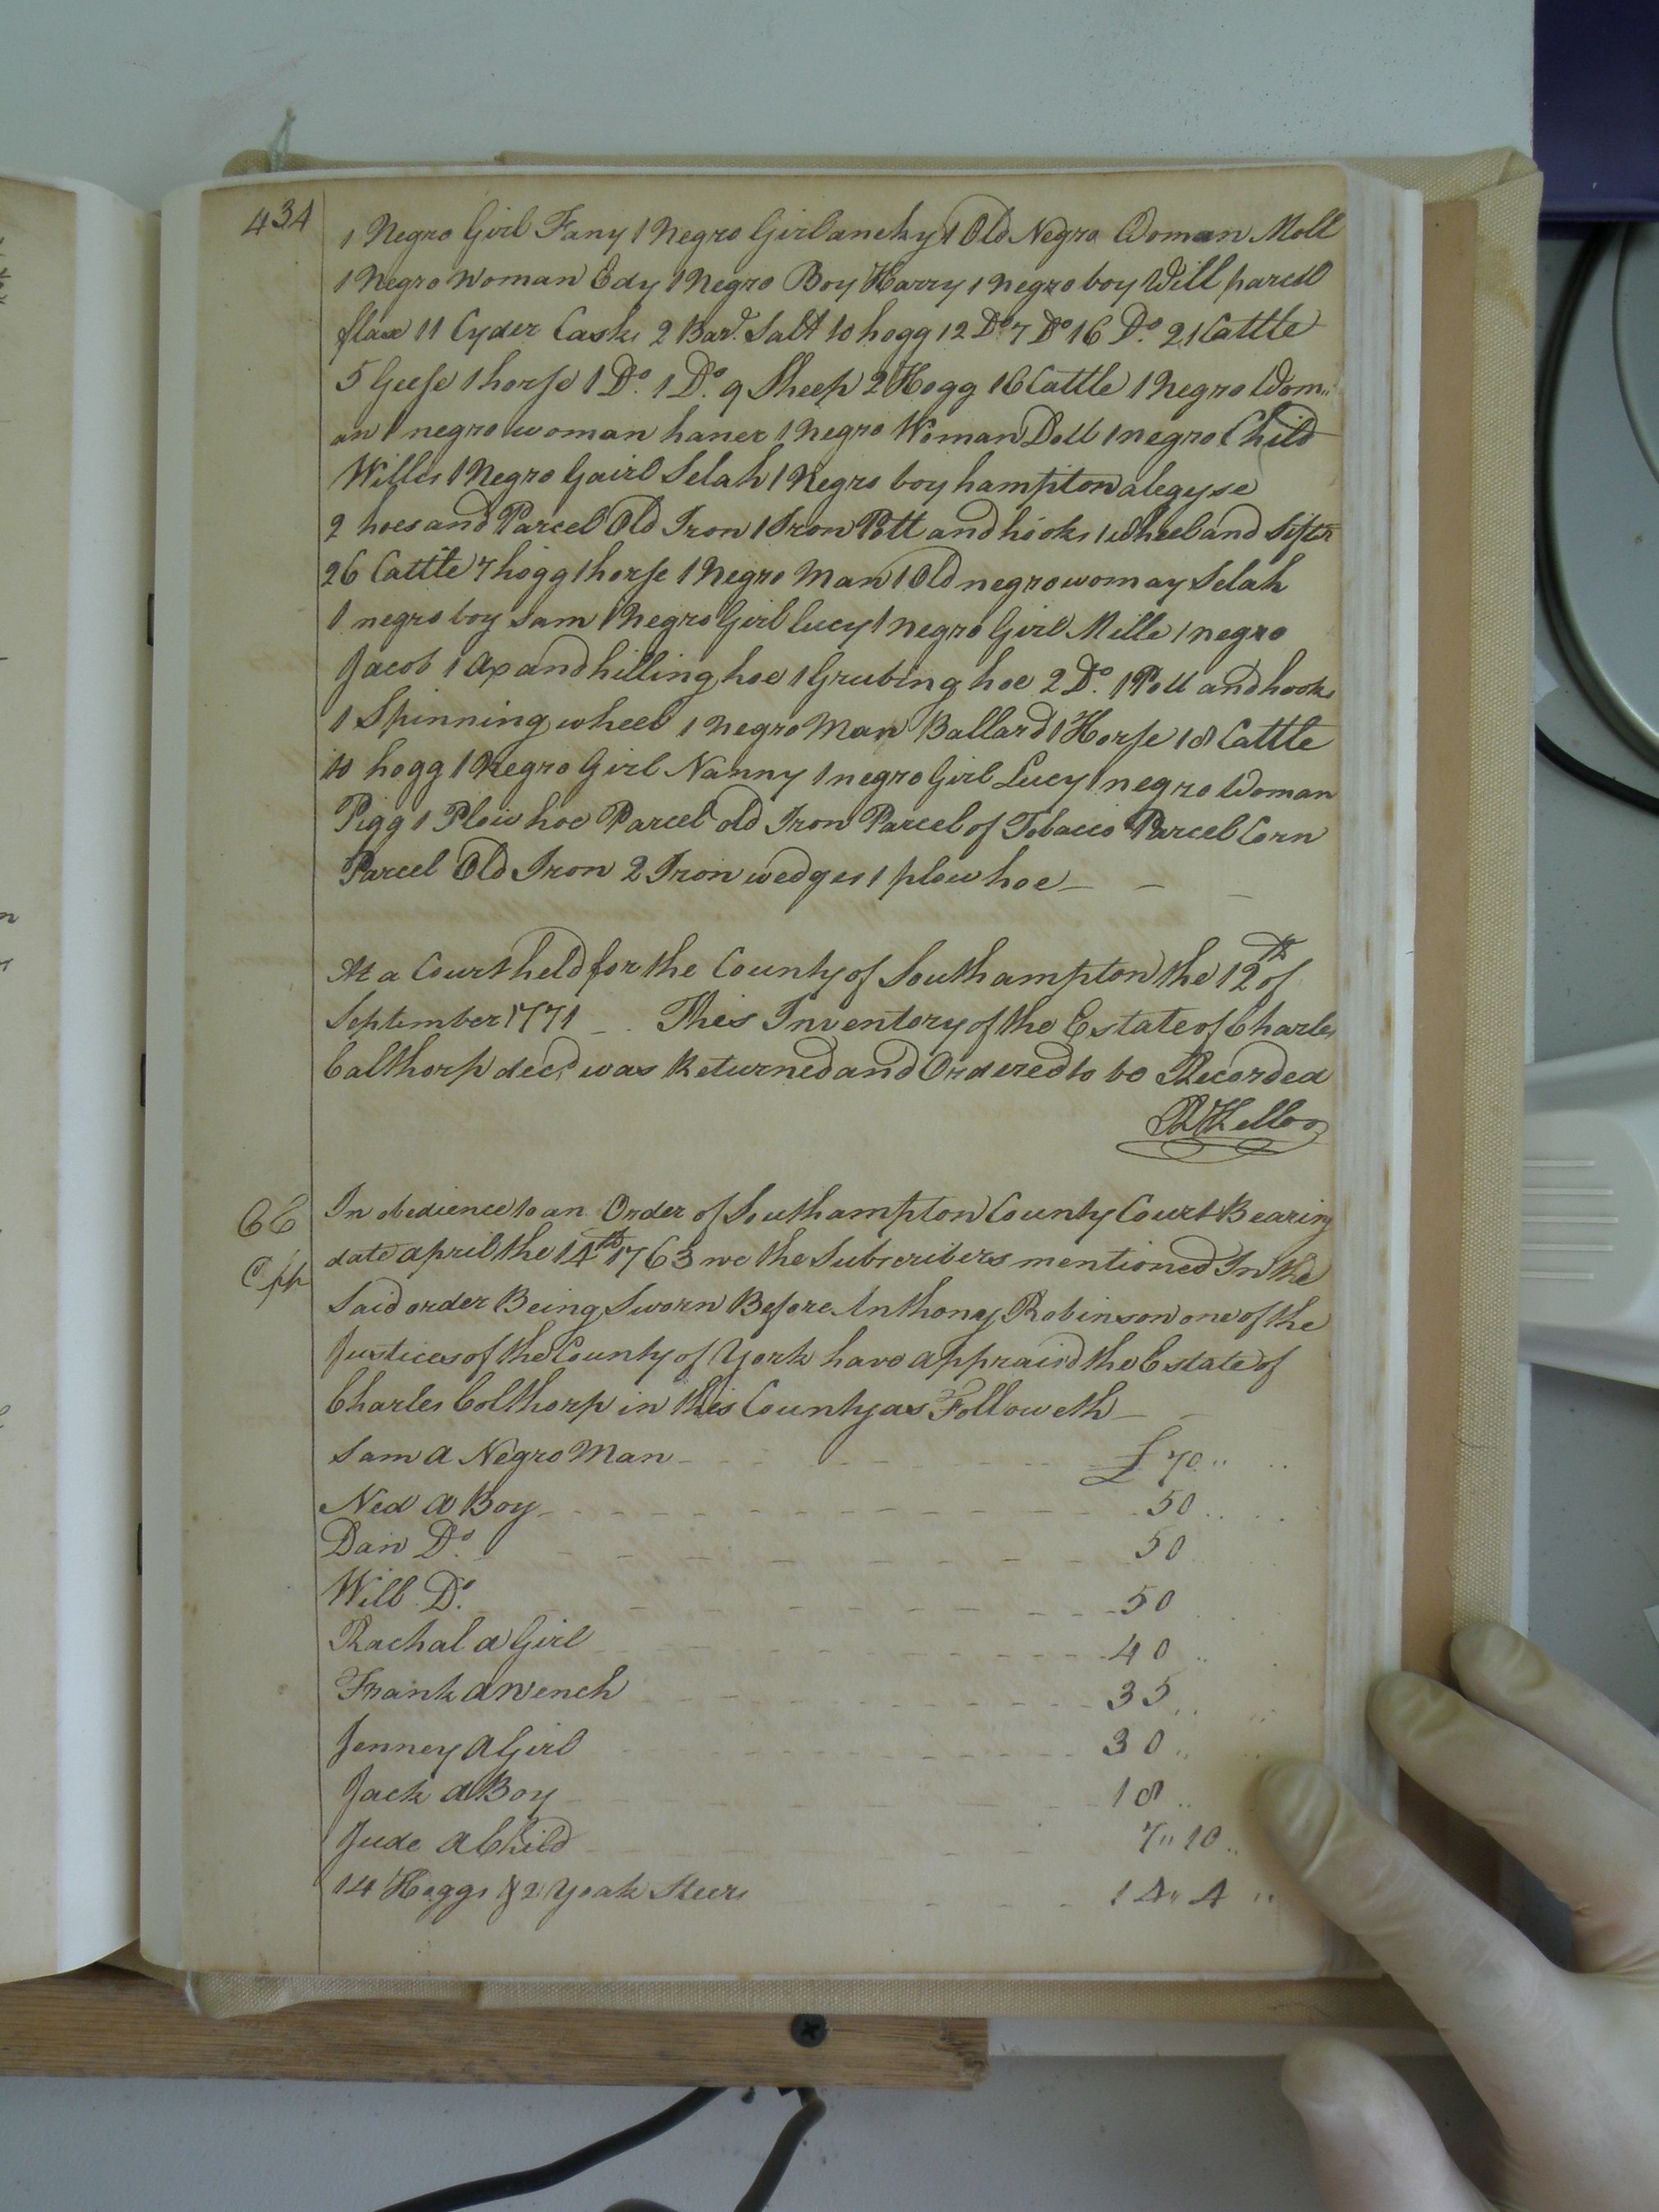 434
1 Negro Girl Fany 1 Negro Girl ancky 1 Old Negro Woman Moll
1 Negro Woman Edy 1 Negro Boy Harry 1 negro boy Will parcel
flax 11 Cyder Casks 2 Barl. Salt 10 hogg 12 Do 7 Do 16 Do. 21 Cattle
5 Geese 1 horse 1 Do. 1 Do. 9 Sheep 2 Hogg 16 Cattle 1 Negro Wom
an 1 negro woman haner 1 Negro Woman Doll 1 negro Child
Willis 1 Negro Gairl Selah 1 Negro boy hampton
2 hoes and Parcel Old Iron 1 Iron Pott and hooks 1 wheel and Sifter
26 Cattle 7 hogg 1 horse 1 Negro Man 1 Old negro womay Selah
1 negro boy Sam 1 Negro Girl Lucy 1 negro Girl Mille 1 negro
Jacob 1 Ax and hilling hoe 1 Grubing hoe 2 Do. 1 Pott and hooks
1 Spinning wheel 1 negro Man Ballard 1 Horse 18 Cattle
10 hogg 1 Negro Girl Nanny 1 negro Girl Lucy 1 negro Woman
Pigg 1 Plow hoe Parcel old Iron Parcel of Tobacco Parcel Corn
Parcel Old Iron 2 Iron wedges 1 plow hoe
At a Court held for the County of Southampton the 12th of
September 1771 This Inventory of the Estate of Charles
Calthorp decd was Returned and Ordered to be Recorded
R Kello
In obedience to an Order of Southampton County Court Bearing
date april the 14th 1763 we the Subscribers mentioned In the
Said order Being Sworn Before Anthony Robinson one of the
Justices of the County of York have appraisd the Estate of
Charles Colthorp in this County as Followeth
Sam a Negro Man £ 70
Ned a Boy 50
Dain Do. 50
Will Do. 50
Rachal a Girl 40
Frank a Wench 35
Jenney a Girl 30
Jack a Boy 18
Jude a Child 7 " 10
14 Hoggs & 2 Yoak Steers 14 " 4 "